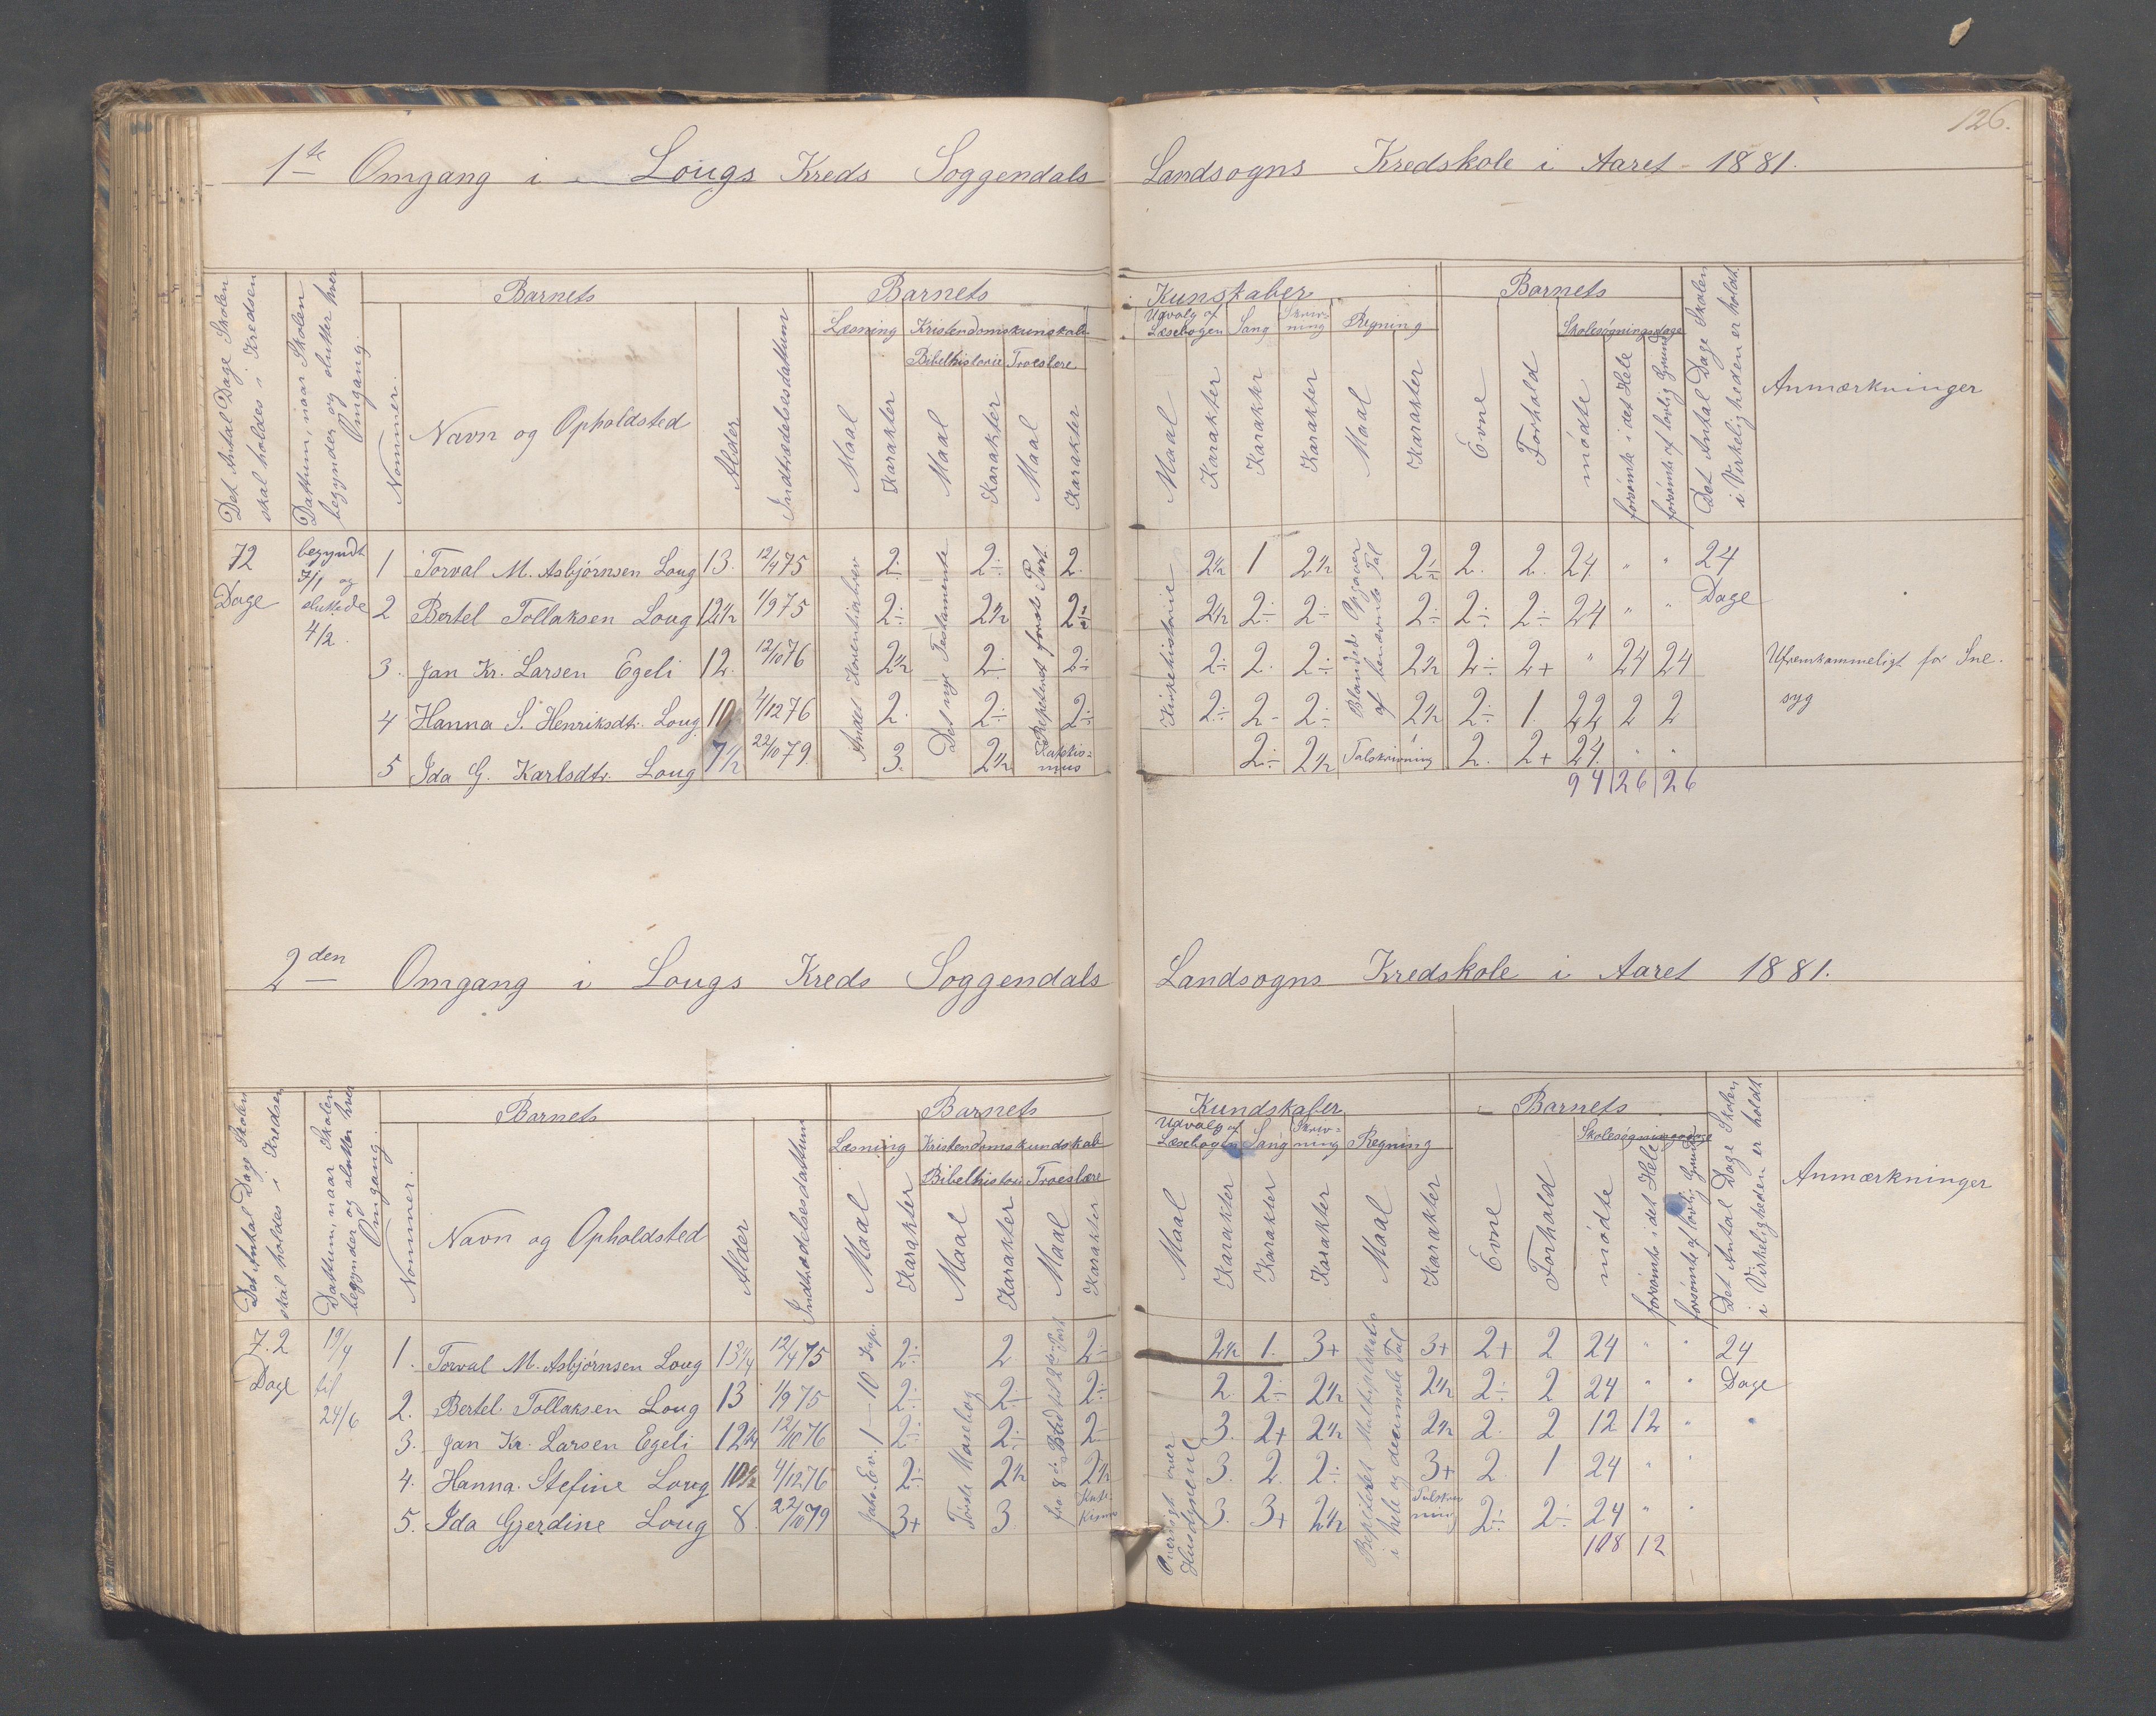 126.
1ste Omgang i Lougs Kreds Soggendals Landsogns Kredskole i Aaret 1881.
Det Antal Dage Skolen skal holdes i Kredsen
Dattum, naar Skolen begynder og slutter hver Omgang.
Barnets
Nommer.
Navn og Opholdsted
Alder
Indtrædelsesdattum
Barnets Kunskaber
Læsning
Maal
Karakter
Kristendomskunskab
Bibelhistorie
Maal
Karakter
Troeslære
Maal
Karakter
Udvalg af Læsebogen
Maal
Karakter
Sang
Karakter
Skriv-
ning
Karakter
Regning
Maal
Karakter
Barnets
Evne
Forhold
Skolesøgningsdage
mødte
forsømte i det Hele
forsømte af lovlig Grund
Det Antal Dage Skolen i Virkeligheden er holdt
Anmærkninger
72 Dage
begyndt 7/1 og sluttede 4/2.
Andet Korentiabrev
Det nye Testamente
Repeteret første Part
Kirkehistorie
Blandede Opgaver af benævnte Tal
24 Dage
1 Torval M. Asbjørnsen Loug 13. 12/4 75 2. 2÷ 2. 2½ 1 2½ 2½ 2. 2. 24 " "
2 Bertel Tollaksen Loug 12½ 1/9 75 2÷ 2½ 2÷ 2½ 2÷ 2÷ 2÷ 2÷ 2÷ 24 " "
3. Jan Kr. Larsen Egeli 12. 12/10 76 2½ 2÷ 2÷ 2÷ 2. 2÷ 2½ 2÷ 2+ " 24 24 Ufremkommeligt for Sne.
4 Hanna S. Henriksdtr. Loug 10 4/12 76 2. 2÷ 2÷ 2÷ 2- 2÷ 2½ 2÷ 1. 22 2 2 syg
5 Ida G. Karlsdtr. Loug 7½ 22/10 79 3. 2½ Katekis=
mus 2÷ 2½ Talskrivning 2. 2+ 24. " "
94 26 26
2den Omgang i Lougs Kreds Soggendals Landsogns Kredskole i Aaret 1881.
Det Antal Dage Skolen skal holdes i Kredsen
Dattum, naar Skolen begynder og slutter hver Omgang.
Barnets
Nommer.
Navn og Opholdsted
Alder
Indtrædelsesdattum
Barnets Kundskaber
Læsning
Maal
Karakter
Kristendomskundskab
Bibelhistorie
Maal
Karakter
Troeslære
Maal
Karakter
Udvalg af Læsebogen
Maal
Karakter
Sang
Karakter
Skriv=
ning
Karakter
Regning
Maal
Karakter
Barnets
Evne
Forhold
Skolesøgningsdage
mødte
forsømte i det Hele
forsømte af lovlig Grund
Det Antal Dage Skolen i Virkeligheden er holdt
Anmærkninger
72 Dage
19/4 til 24/6
Joh. Ev. 1-10 Kap.
Første Mosebog
fra 8de Bud til 2den Part
Oversigt over Husdyrene
Repiteret Multiplikation i hele og decimale Tal
24 Dage
1. Torval M. Asbjørnsen Loug 13¼ 12/4 75 2÷ 2 2÷ 2½ 1. 3+ 3+ 2+ 2 24 " "
2. Bertel Tollaksen Loug 13 1/9 75 2÷ 2÷ 2÷ 2. 2÷ 2½ 2½ 2÷ 2 24 " "
3. Jan Kr. Larsen Egeli 12¼ 12/10 76 2÷ 2÷ 2- 3. 2+ 2½ 2½ 2. 2 12 12 "
4. Hanna Stefine Loug 10½ 4/12 76 2÷ 2½ 2½ 3. 2. 2÷ 3+ 2. 1 24 " "
5. Ida Gjerdine Loug 8. 22/10 79 3+ 3. 3. 3+ 2½ 2÷ 2÷ 24 " "
108 12